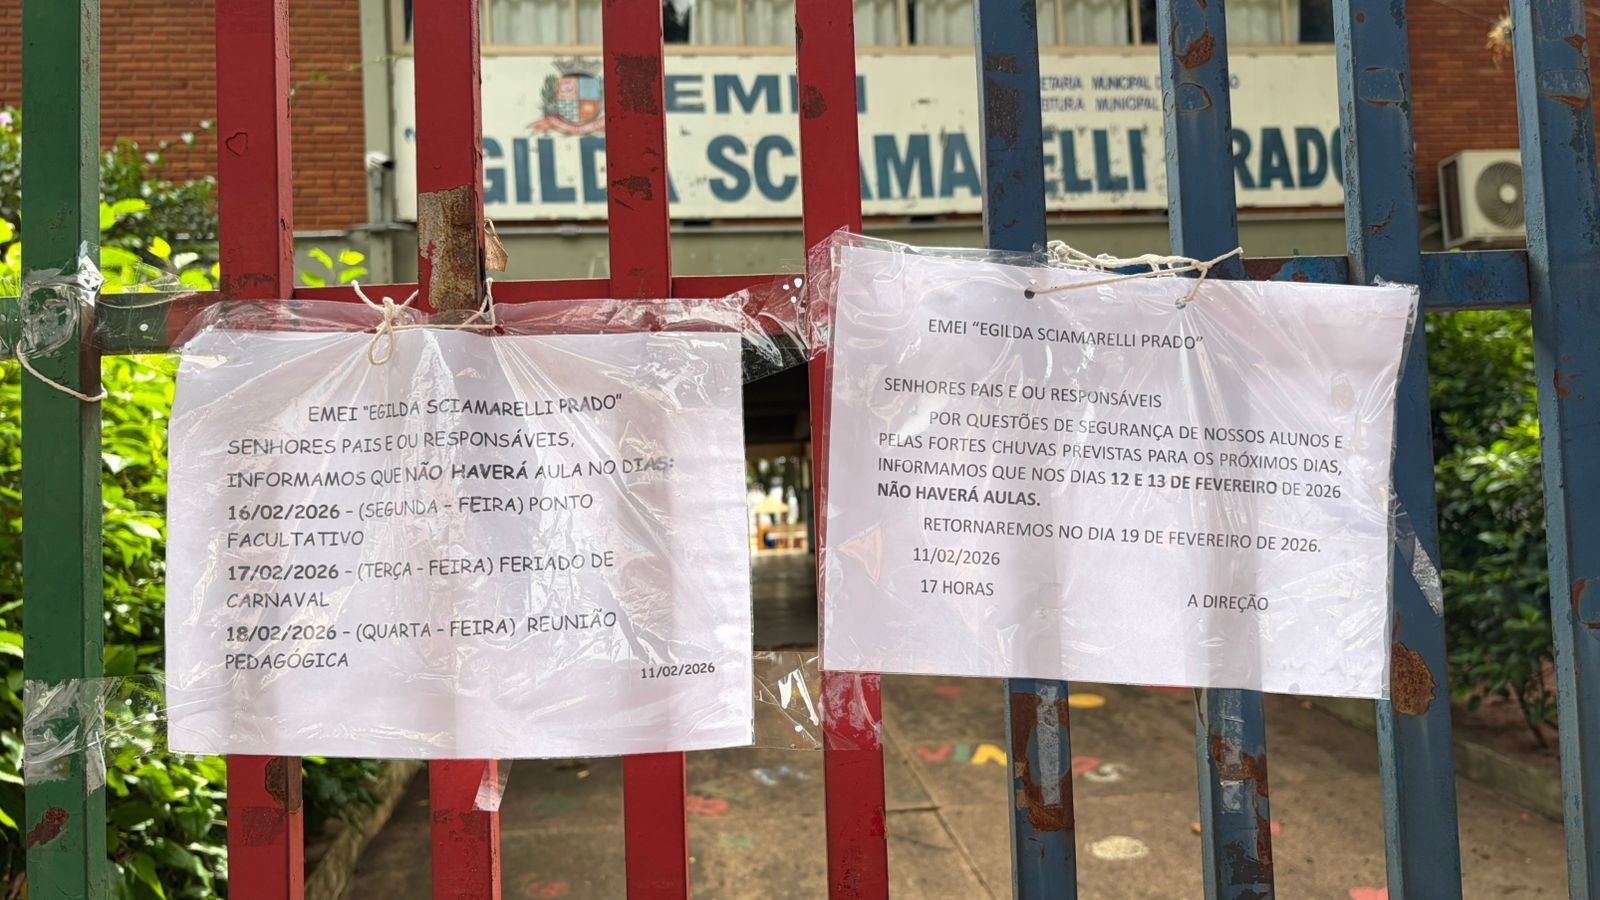 EMEI
ETARIA MUNICIPAL D
EITURA MUNICIPAL
GILDA SCIAMARELLI PRADO
EMEI "EGILDA SCIAMARELLI PRADO"
SENHORES PAIS E OU RESPONSÁVEIS,
INFORMAMOS QUE NÃO HAVERÁ AULA NO DIAS:
16/02/2026 - (SEGUNDA - FEIRA) PONTO
FACULTATIVO
17/02/2026 - (TERÇA - FEIRA) FERIADO DE
CARNAVAL
18/02/2026 - (QUARTA - FEIRA) REUNIÃO
PEDAGOGICA
11/02/2026
EMEI "EGILDA SCIAMARELLI PRADO"
SENHORES PAIS E OU RESPONSÁVEIS
POR QUESTÕES DE SEGURANÇA DE NOSSOS ALUNOS E
PELAS FORTES CHUVAS PREVISTAS PARA OS PRÓXIMOS DIAS,
INFORMAMOS QUE NOS DIAS 12 E 13 DE FEVEREIRO DE 2026
NÃO HAVERÁ AULAS.
RETORNAREMOS NO DIA 19 DE FEVEREIRO DE 2026.
11/02/2026
17 HORAS
A DIREÇÃO